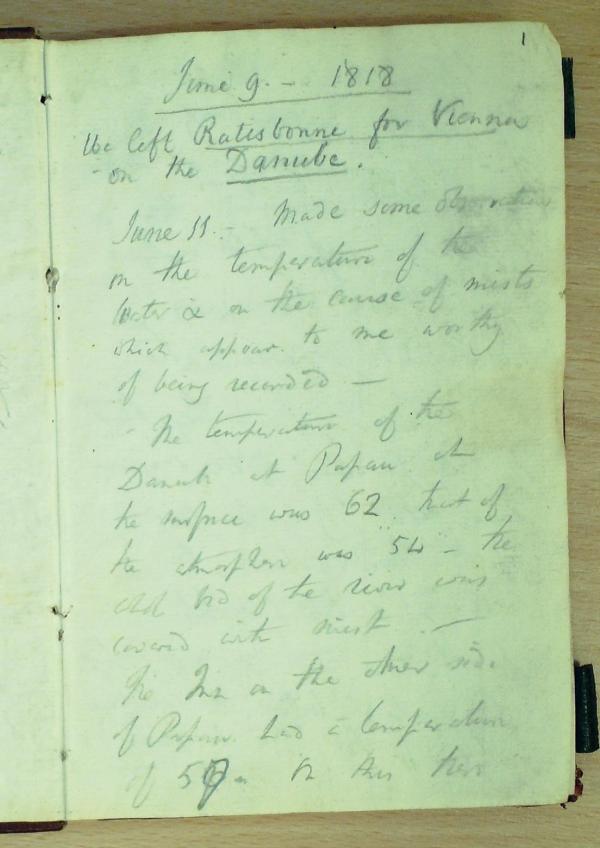 1
June 9. - 1818
We left Ratisbonne for Vienna
on the Danube.
June 11. - Made some observations
on the temperature of the
Water & on the cause of mists
which appear to me worthy
of being recorded —
- The temperature of the
Danube at Papau at
the surface was 62 that of
the atmosphere was 54 - the
bed of the river was
covered with mist . —
The Inn on the other side
of Papau had a temperature
of